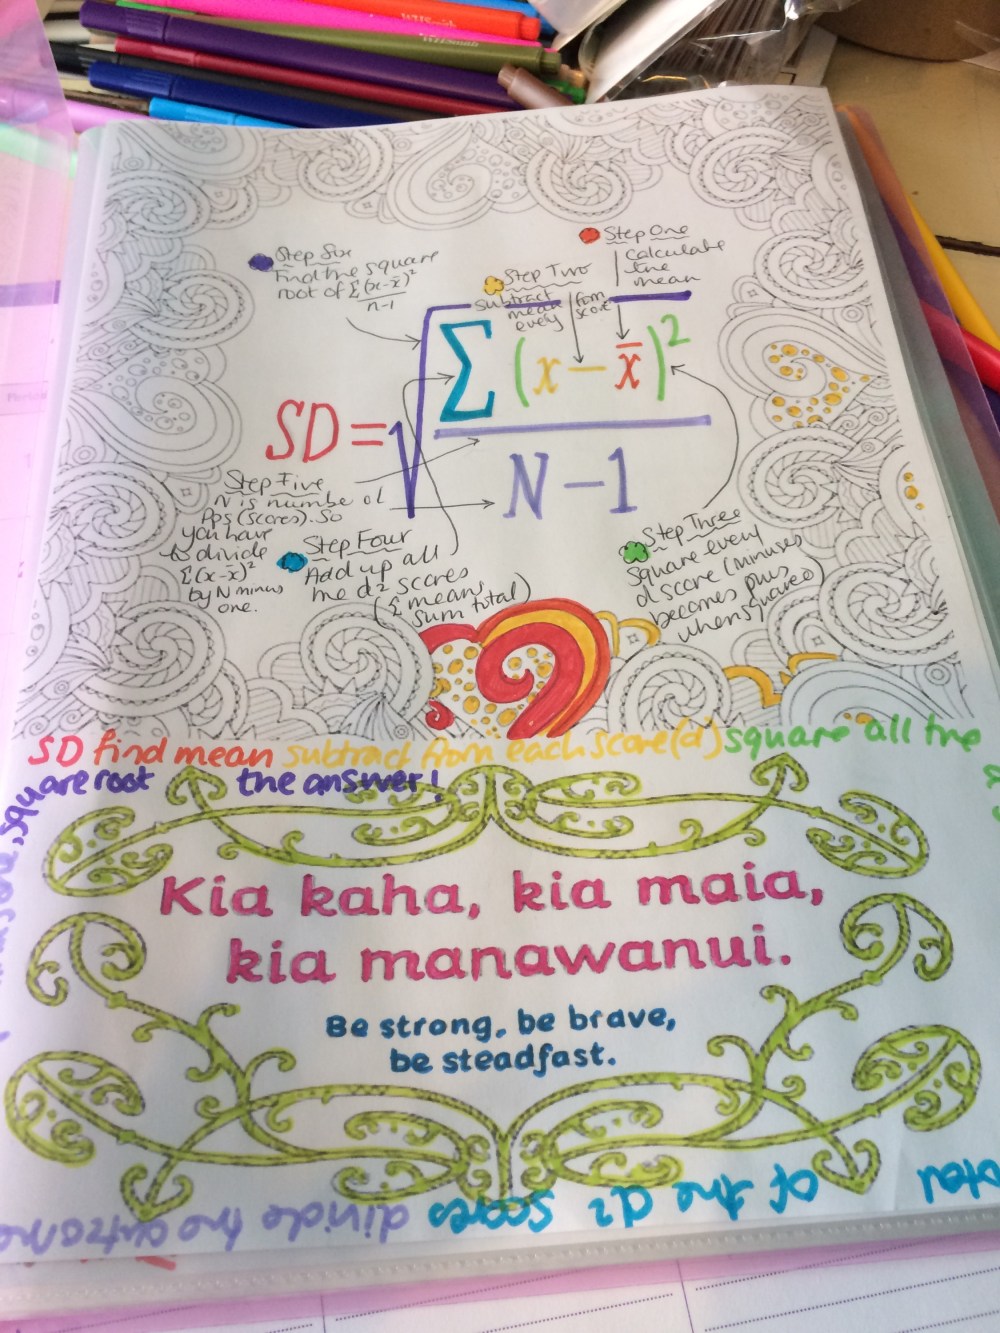 Step Six
Find the square
root of Σ(x-x̄)²
n-1
Step One
Calculate
the
mean
Step Two
subtract
mean from
every score
SD = √ Σ (x - x̄)²
N - 1
Step Five
N is number of
Pps (scores). So
you have
to divide
Σ(x-x̄)²
by N minus
one.
Step Four
Add up all
the d² scores
(Σ means
sum total)
Step Three
Square every
d score (minuses
becomes plus
when squared)
SD find mean subtract from each score(d) square all the
total of the d² scores divide the outcome
square root the answer!
Kia kaha, kia maia,
kia manawanui.
Be strong, be brave,
be steadfast.